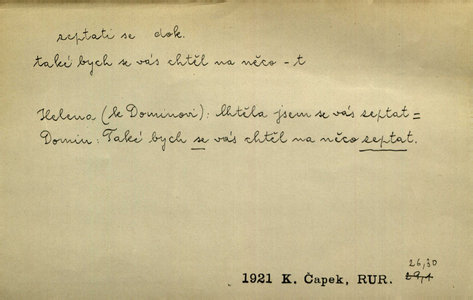 zeptati se dok.
také bych se vás chtěl na něco -t
Helena (k Dominovi): Chtěla jsem se vás zeptat=
Domin: Také bych se vás chtěl na něco zeptat.
26,30
1921 K. Čapek, RUR. 29,1